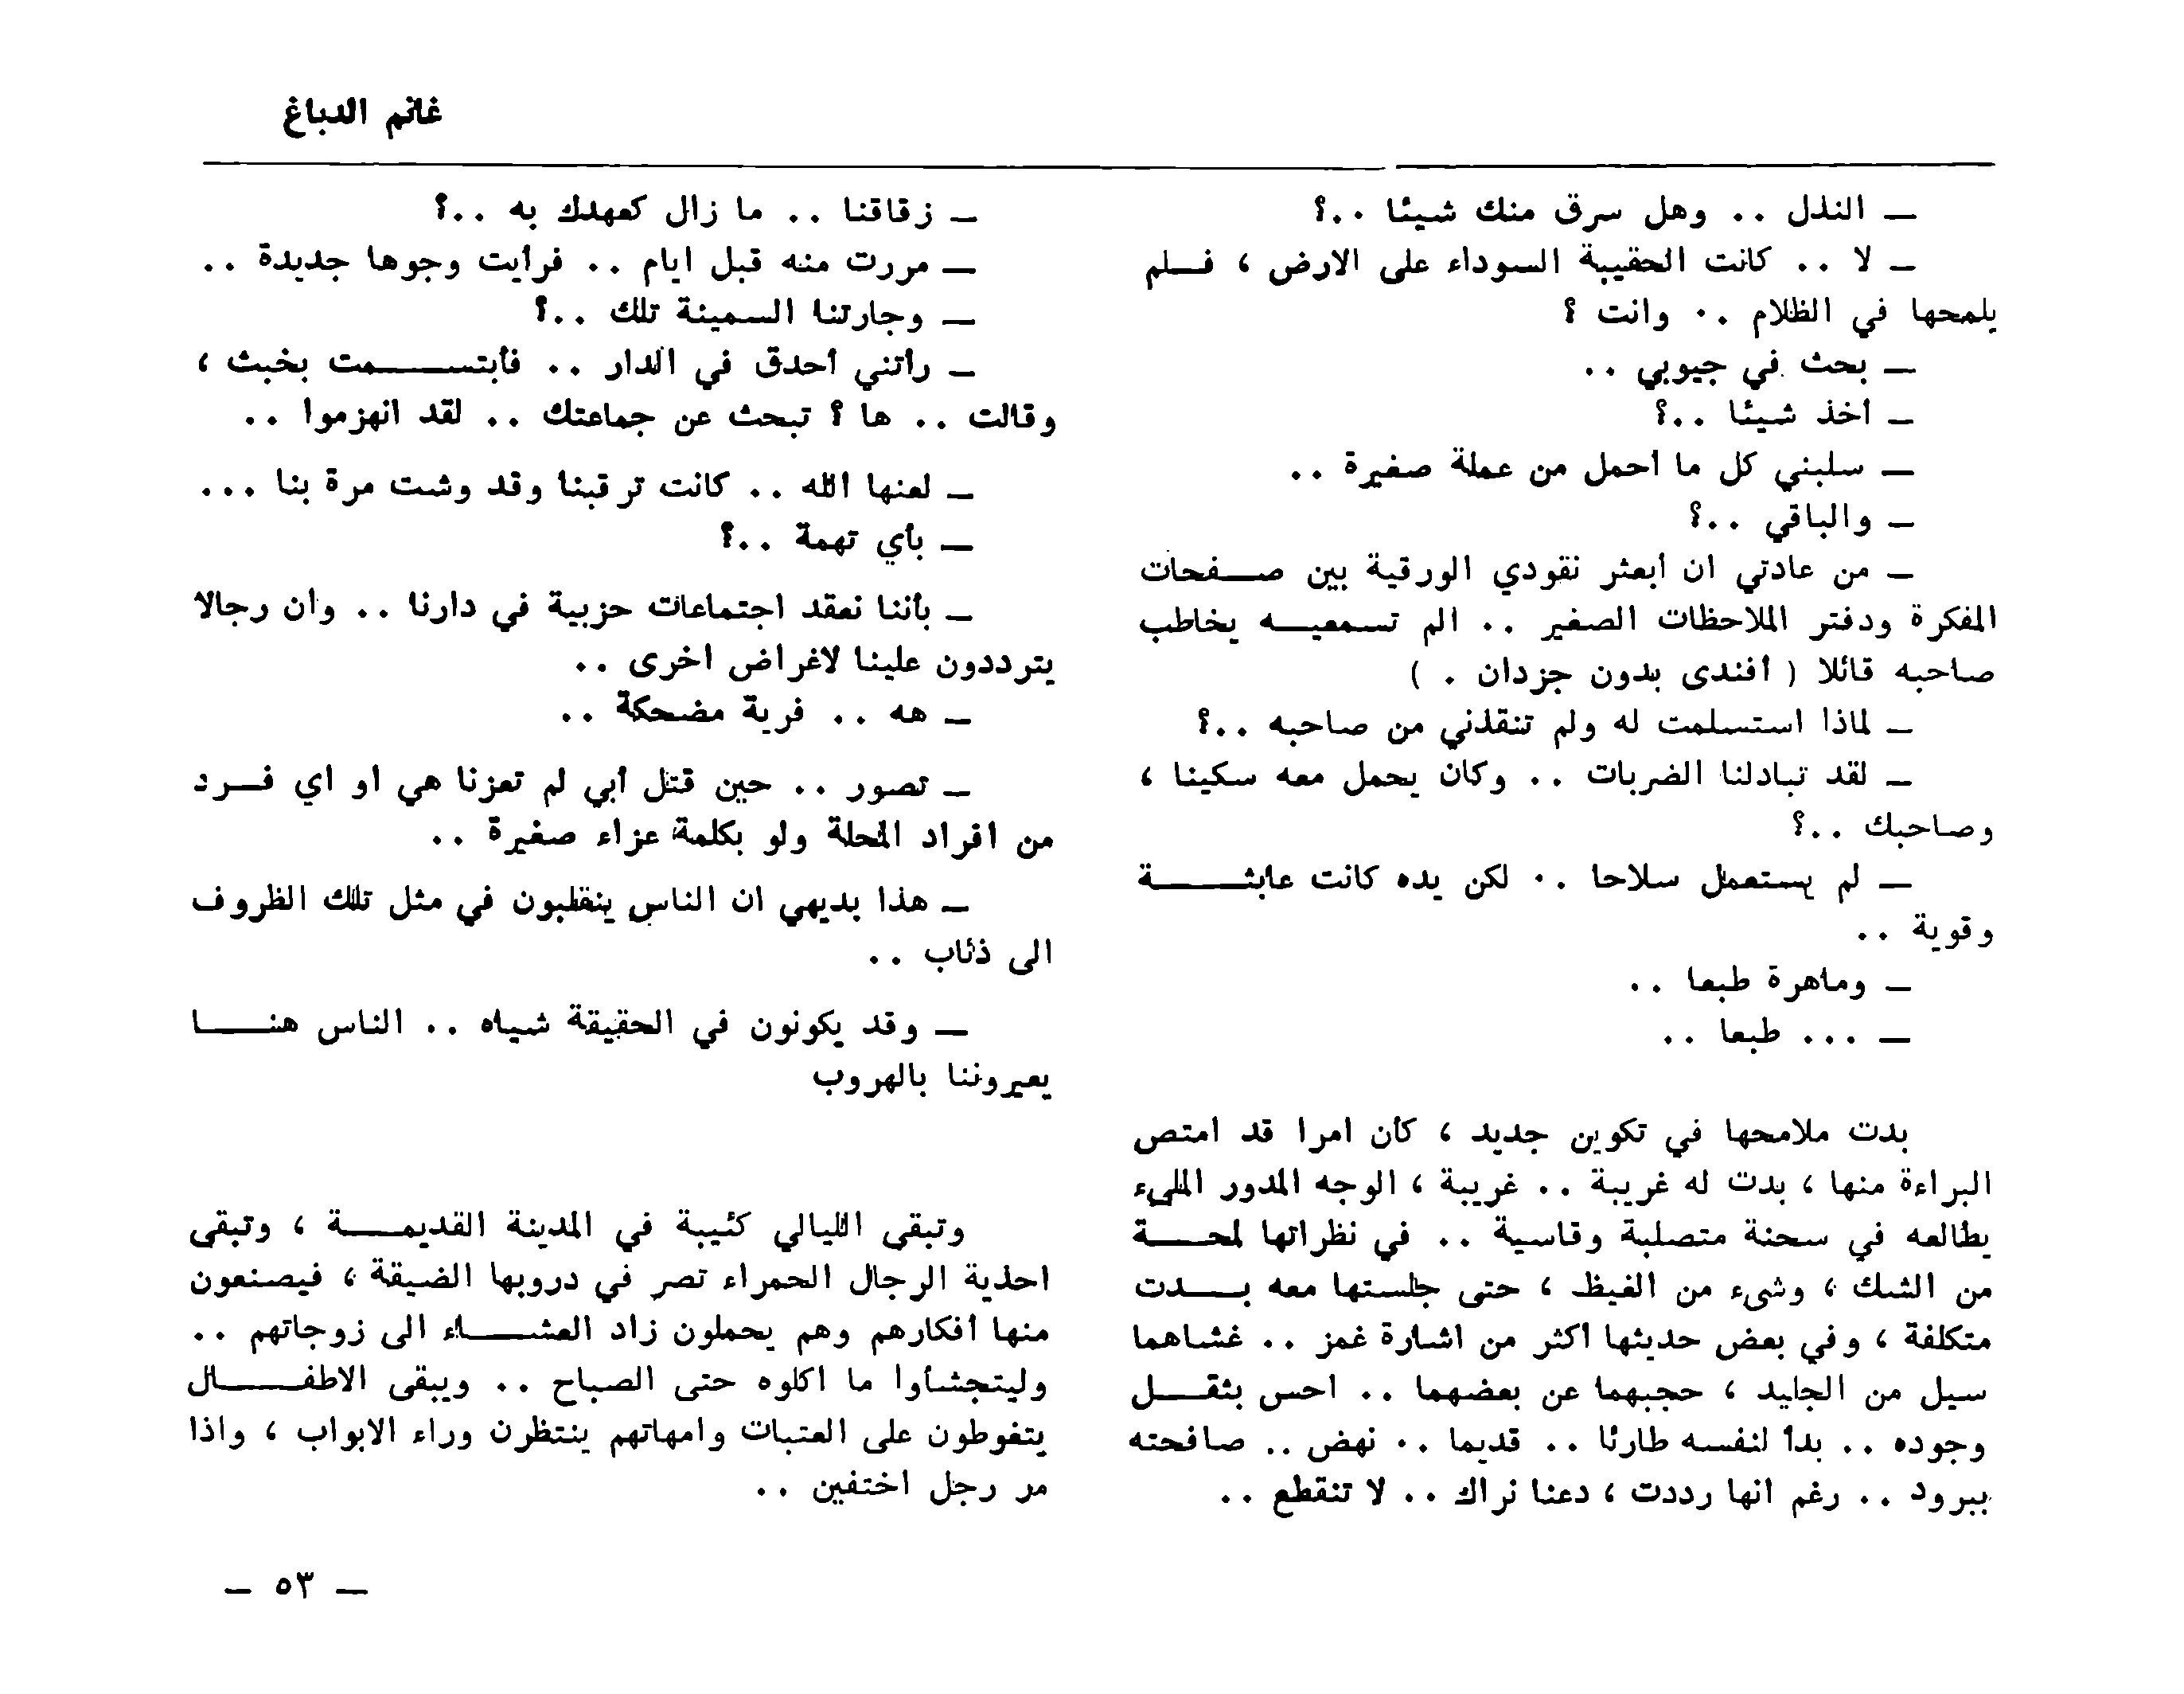 غانم الدباغ
— النذل .. وهل سرق منك شيئا ..؟
— لا .. كانت الحقيبة السوداء على الارض ، فلم
يلمحها في الظلام .. وانت ؟
— بحث في جيوبي ..
— أخذ شيئا ..؟
— سلبني كل ما أحمل من عملة صغيرة ..
— والباقي ..؟
— من عادتي ان أبعثر نقودي الورقية بين صفحات
المفكرة ودفتر الملاحظات الصغير .. الم تسمعيه يخاطب
صاحبه قائلا ( أفندى بدون جزدان . )
— لماذا استسلمت له ولم تنقذني من صاحبه ..؟
— لقد تبادلنا الضربات .. وكان يحمل معه سكينا ،
وصاحبك ..؟
— لم يستعمل سلاحا .. لكن يده كانت عابثة
وقوية ..
— وماهرة طبعا ..
— ... طبعا ..
بدت ملامحها في تكوين جديد ، كأن امرا قد امتص
البراءة منها ، بدت له غريبة .. غريبة ، الوجه المدور المليء
يطالعه في سحنة متصلبة وقاسية .. في نظراتها لمحة
من الشك ، وشيء من الغيظ ، حتى جلستها معه بدت
متكلفة ، وفي بعض حديثها أكثر من اشارة غمز .. غشاهما
سيل من الجليد ، حجبهما عن بعضهما .. احس بثقل
وجوده .. بدأ لنفسه طارئا .. قديما .. نهض .. صافحته
ببرود .. رغم انها رددت ، دعنا نراك .. لا تنقطع ..
— زقاقنا .. ما زال كعهدك به ..؟
— مررت منه قبل ايام .. فرأيت وجوها جديدة ..
— وجارتنا السمينة تلك ..؟
— رأتني أحدق في الدار .. فأبتسمت بخبث ،
وقالت .. ها ؟ تبحث عن جماعتك .. لقد انهزموا ..
— لعنها الله .. كانت ترقبنا وقد وشت مرة بنا ...
— بأي تهمة ..؟
— بأننا نعقد اجتماعات حزبية في دارنا .. وان رجالا
يترددون علينا لاغراض اخرى ..
— هه .. فرية مضحكة ..
— تصور .. حين قتل أبي لم تعزنا هي او اي فرد
من افراد المحلة ولو بكلمة عزاء صغيرة ..
— هذا بديهي ان الناس ينقلبون في مثل تلك الظروف
الى ذئاب ..
— وقد يكونون في الحقيقة شياه .. الناس هنا
يعيروننا بالهروب
وتبقى الليالي كئيبة في المدينة القديمة ، وتبقى
احذية الرجال الحمراء تصر في دروبها الضيقة ، فيصنعون
منها أفكارهم وهم يحملون زاد العشاء الى زوجاتهم ..
وليتجشأوا ما اكلوه حتى الصباح .. ويبقى الاطفال
يتغوطون على العتبات وامهاتهم ينتظرن وراء الابواب ، واذا
مر رجل اختفين ..
— ٥٣ —